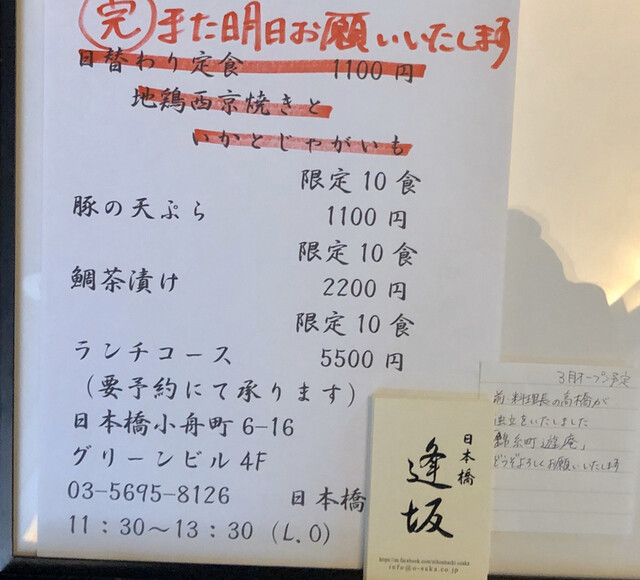 完 また明日お願いいたします
日替わり定食 1100円
地鶏西京焼きと
いかとじゃがいも
限定10食
豚の天ぷら 1100円
限定10食
鯛茶漬け 2200円
限定10食
ランチコース 5500円
（要予約にて承ります）
日本橋小舟町6-16
グリーンビル4F
03-5695-8126 日本橋
11：30～13：30（L.O）
日本橋
逢坂
info@o-saka.co.jp
3月オープン予定
前・料理長の高橋が
独立をいたしました
錦糸町「遊庵」
どうぞよろしくお願いいたします